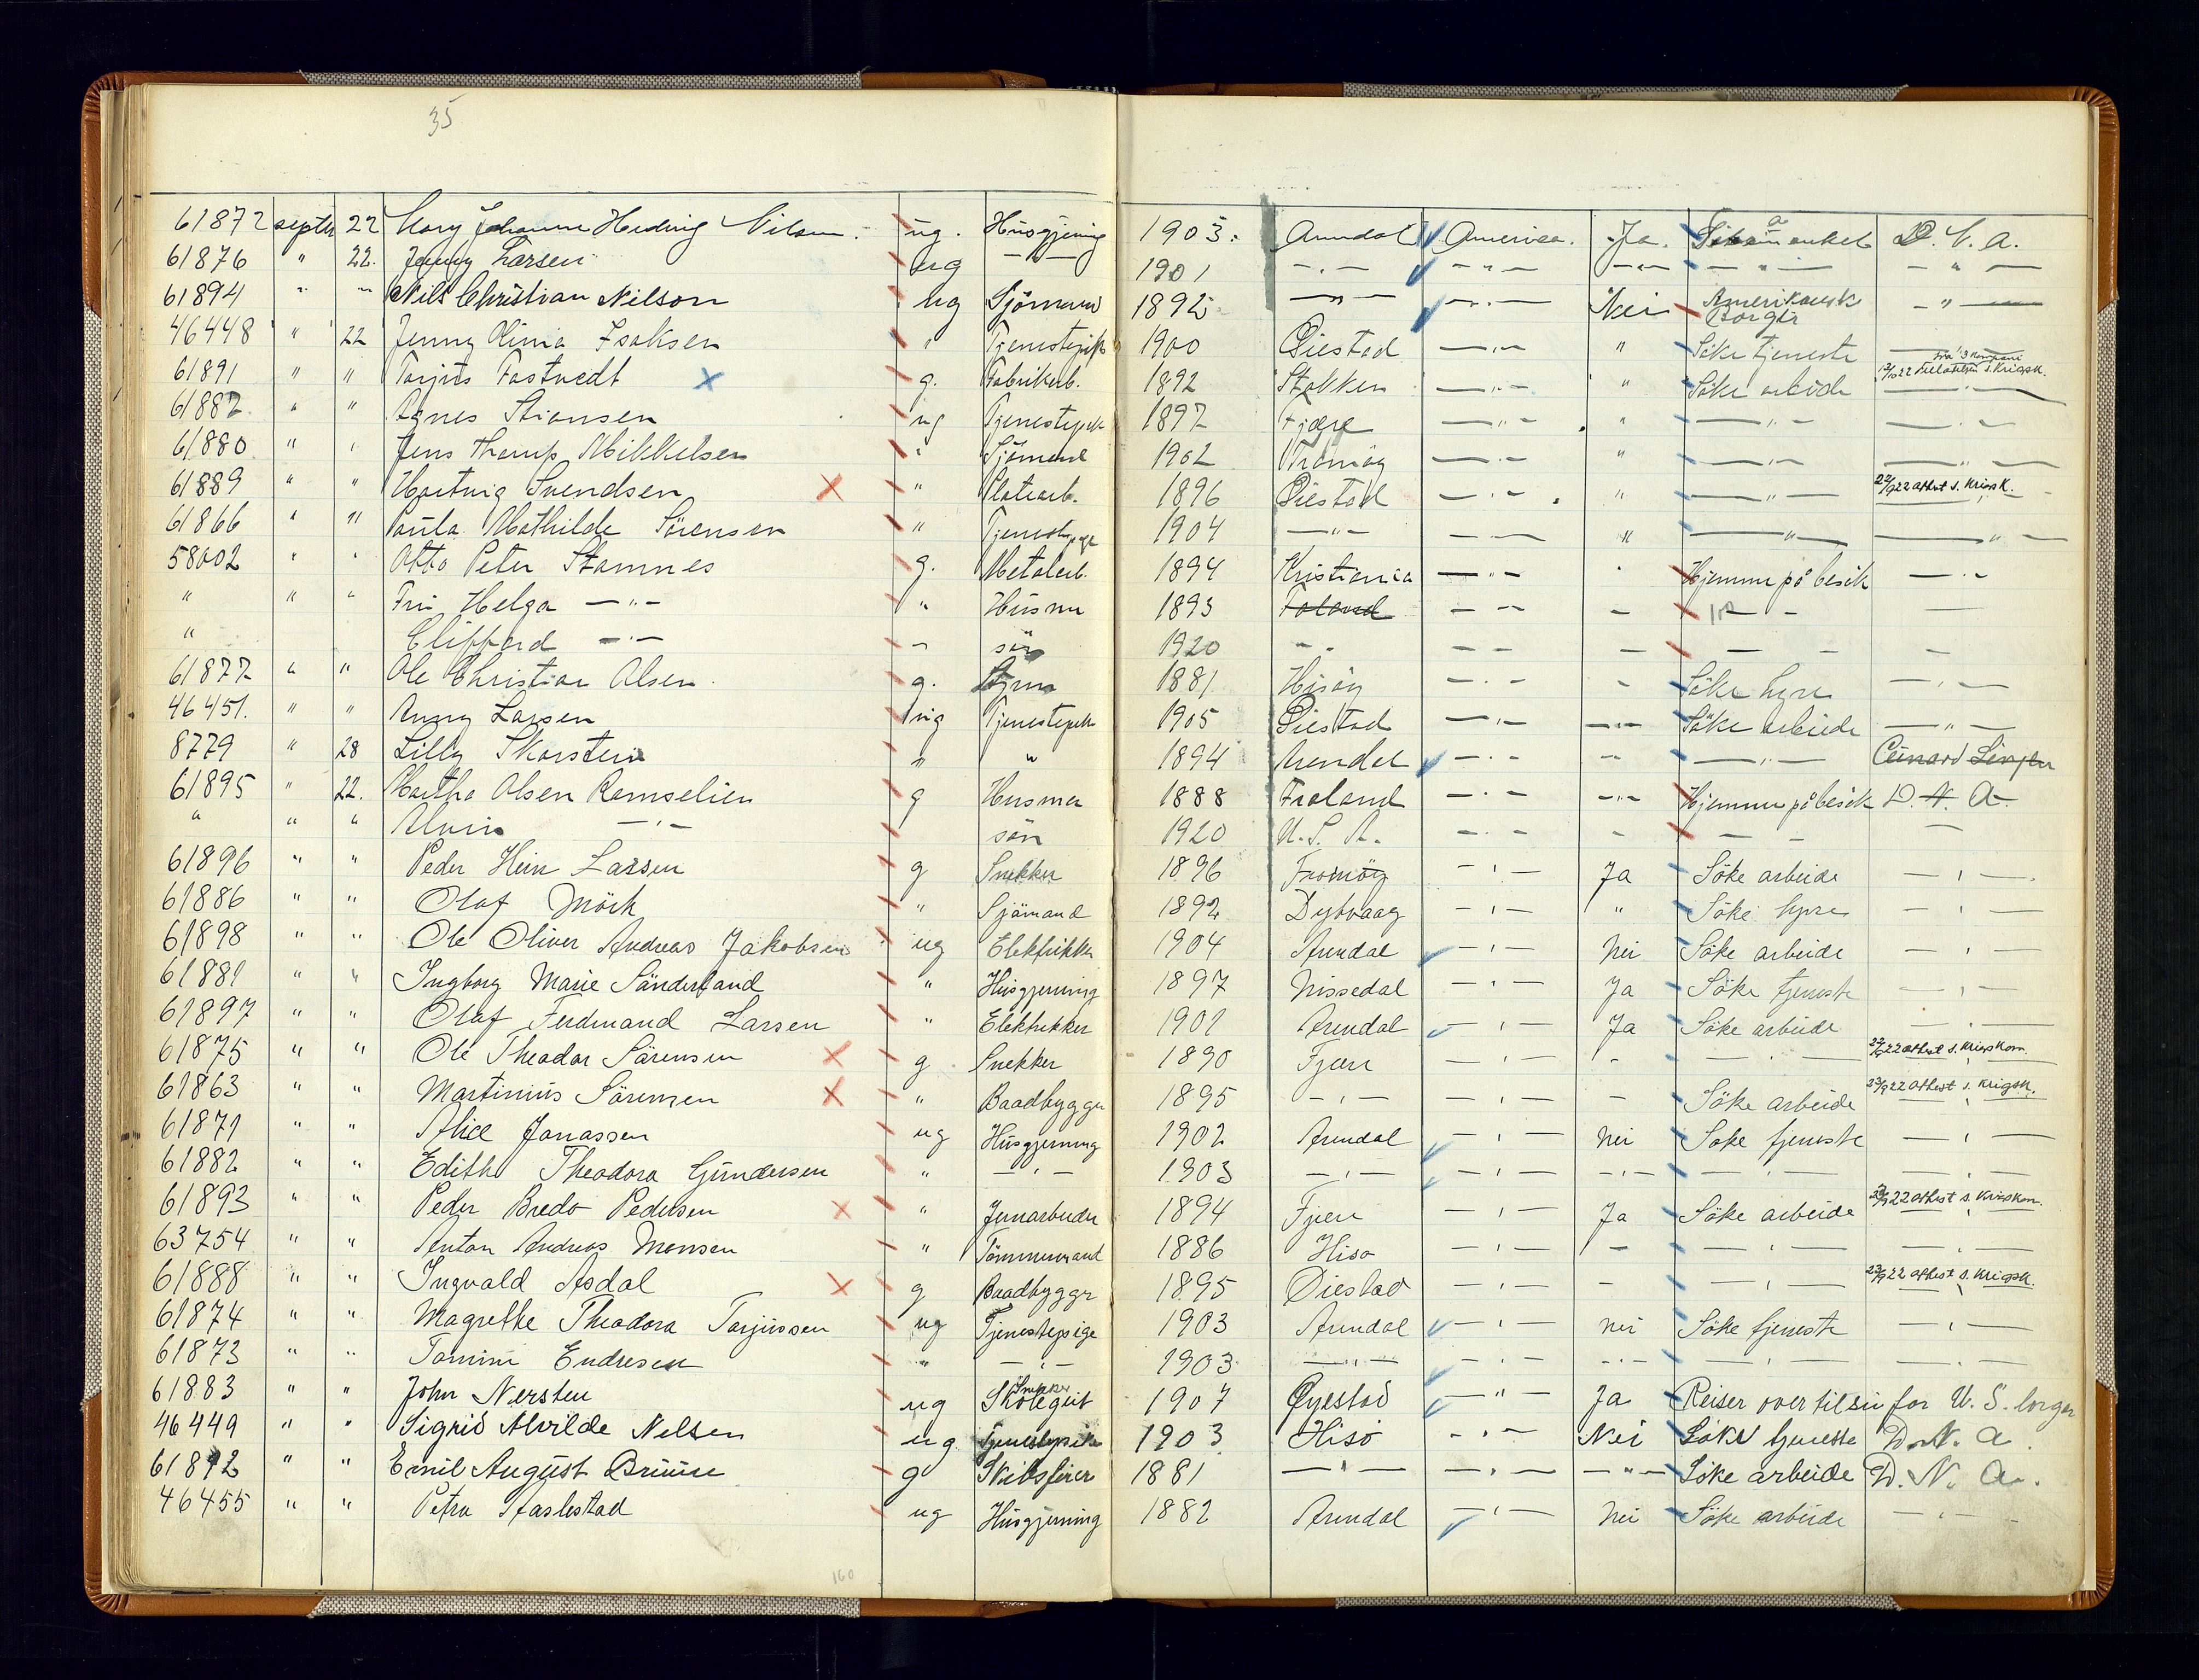 35
61872 septbr 22 Mary Johanne Hedvig Nilsen. ug. Husgjerning 1903. Arendal America. Ja. a D. N. A.
61876 " 22. Jenny Larsen ug — " — 1901 — " — — " — — " — — " — — " —
61894 " " Nils Christian Nilson ug Sjömand 1892 — " — — " — Nei Amerikansk Borger — " —
46448 " 22 Jenny Isaksen " Tjenestepik 1900 Öiestad — " — " Söke tjeneste — " —
61891 " " Torjus Fastvedt x g. Fabrikarb. 1892 Stokken — " — " Söke arbeide — " —
61887 " " Agnes Stiansen ug Tjenestepik 1897 Fjære — " — " — " — — " —
61880 " " Jens Mikkelsen " Sjömand 1902 Tromöy — " — " — " — — " —
61889 " " Hartvig Svendsen x " Platearb. 1896 Öiestad — " — " — " — 22/9 22 attest s. Krigsk.
61866 " " Paula Mathilde Sörensen " Tjenestepige 1904 — " — — " — " — " — — " —
58002 " " Otto Peter Stamnes g. Metalarb. 1894 Kristiania — " — " Hjemme på besök — " —
" " " Fru Helga — " — " Husmor 1893 Froland — " — - — —
" Clifford — " — " sön 1920 — " — — — — —
61877 " " Ole Christian Olsen g. 1881 Hisöy — " — - Söke hyre — " —
46451. " " Anny Larsen ug Tjenestepik 1905 Öiestad — " — — " — Söke arbeide — " —
8779 " 28 Lilly Skarstein " " 1894 Arendal — " — — " — — " — Cunard Linjen
61895 " 22. Martha Olsen Ramselien g Husmor 1888 Froland — " — — " — Hjemme på besök D. N. A.
" " " Alvin — " — sön 1920 U. S. A. — " — — — —
61896 " " Peder Hein Larsen g Snekker 1896 Tromöy — " — Ja Söke arbeide — " —
61886 " " Olaf Mörk " Sjömand 1892 Dybvaag — " — " Söke hyre — " —
61898 " " Ole Oliver Andreas Jakobsen ug Elektriker 1904 Arendal — " — Nei Söke arbeide — " —
61881 " " Ingborg Marie Sönderland " Husgjerning 1897 Nissedal — " — Ja Söke tjeneste — " —
61897 " " Olaf Ferdinand Larsen " Elektrikker 1901 Arendal — " — Ja Söke arbeide — " —
61875 " " Ole Theodor Sörensen x g Snekker 1890 Fjære — " — - — " — 22/9 22 attest s. Krigskom.
61863 " " Martinius Sörensen x " Baadbygger 1895 — " — — " — - Söke arbeide 23/9 22 attest s. Krigsk.
61871 " " Alice Jonassen ug Husgjerning 1902 Arendal — " — Nei Söke tjeneste — " —
61882 " " Edith Theodora Gundersen " — " — 1903 — " — — " — — " — — " — — " —
61893 " " Peder Bredo Pedersen x " Jernarbeider 1894 Fjære — " — Ja Söke arbeide 22 attest s. Krigskom.
63754 " " Anton Andreas Monsen " Tömmermand 1886 Hisö — " — - — " — — " —
61888 " " Ingvald Asdal x g Baadbygger 1895 Öiestad — " — - — " — 23/9 22 attest s. Krigsk.
61874 " " Magrethe Theodora Torjussen ug Tjenestepige 1903 Arendal — " — Nei Söke tjeneste — " —
61873 " " Tomine Endresen " — " — 1903 — " — — " — — " — — " — — " —
61883 " " John Nersten ug Skolegut Snekker 1907 Öyestad — " — Ja Reiser over til sin far U. S. borger
46449 " " Sigrid Alvilde Nilsen ug Tjenestepike 1903 Hisö — " — Nei Söke tjeneste D. N. A.
61892 " " Emil August Bruuse g Skibsfører 1881 — " — — " — — " — Söke arbeide D. N. A.
46455 " " Petra Haslestad ug Husgjerning 1882 Arendal — " — Nei Söke arbeide — " —
160